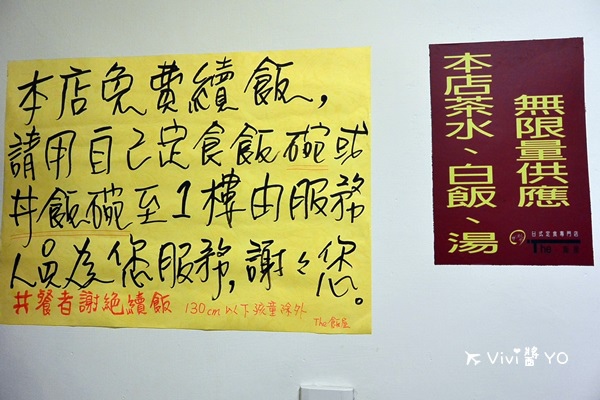 本店免費續飯,
請用自己定食飯碗或
丼飯碗至1樓由服務
人員為您服務,謝々您。
共餐者謝絕續飯 130cm以下孩童除外
The 飯屋
本店茶水、白飯、湯
無限量供應
日式定食專門店
The
Vivi醬YO